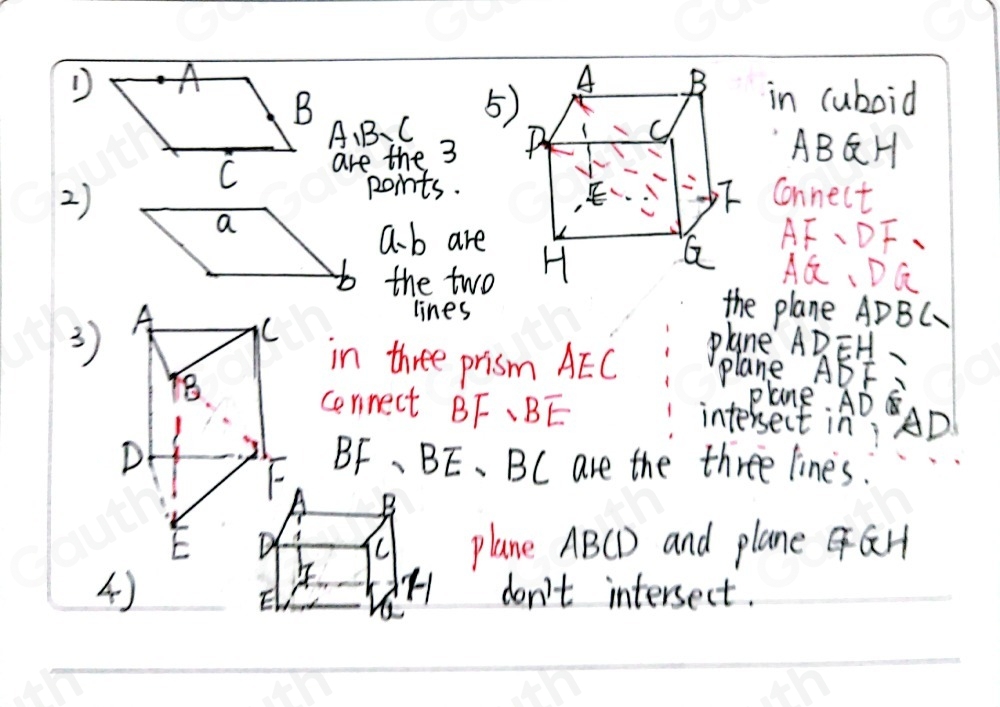 1)
A
B
C
A、B、C
are the 3
points.
2)
a
b
a、b are
the two
lines
3)
A
C
B
D
F
E
in three prism AEC
connect BF、BE
BF、BE、BC are the three lines.
4)
A
B
D
C
F
H
E
G
plane ABCD and plane EFGH
don't intersect.
5)
A
B
D
C
E
F
H
G
in cuboid
ABGH
Connect
AF、DF、
AG、DG
the plane ADBC、
plane ADEH、
plane ADF、
plane ADG
intersect in AD
Gauth